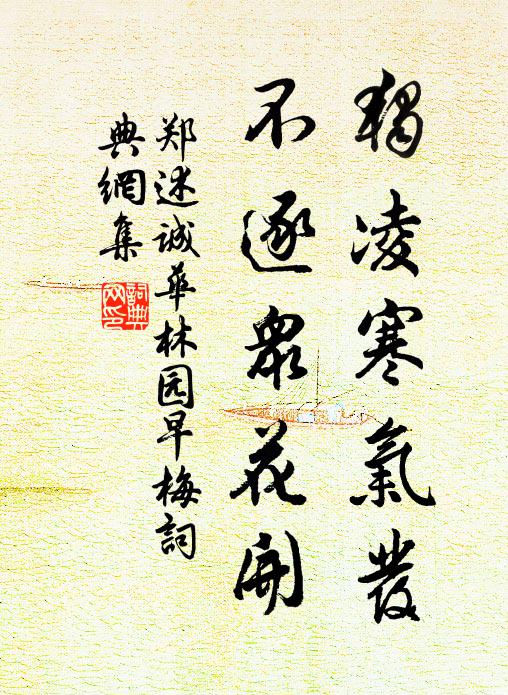 獨凌寒氣發
不逐眾花開
郑述诚華林园早梅詞
典網集
詞典网印